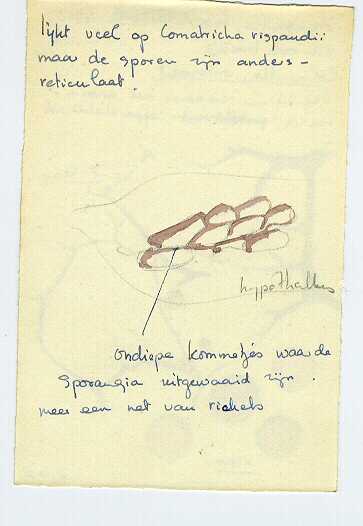 lijkt veel op Comatricha rispaudii
maar de sporen zijn anders -
reticulaat.
hypothallus
Ondiepe kommetjes waar de
sporangia uitgewaaid zijn.
meer een net van richels